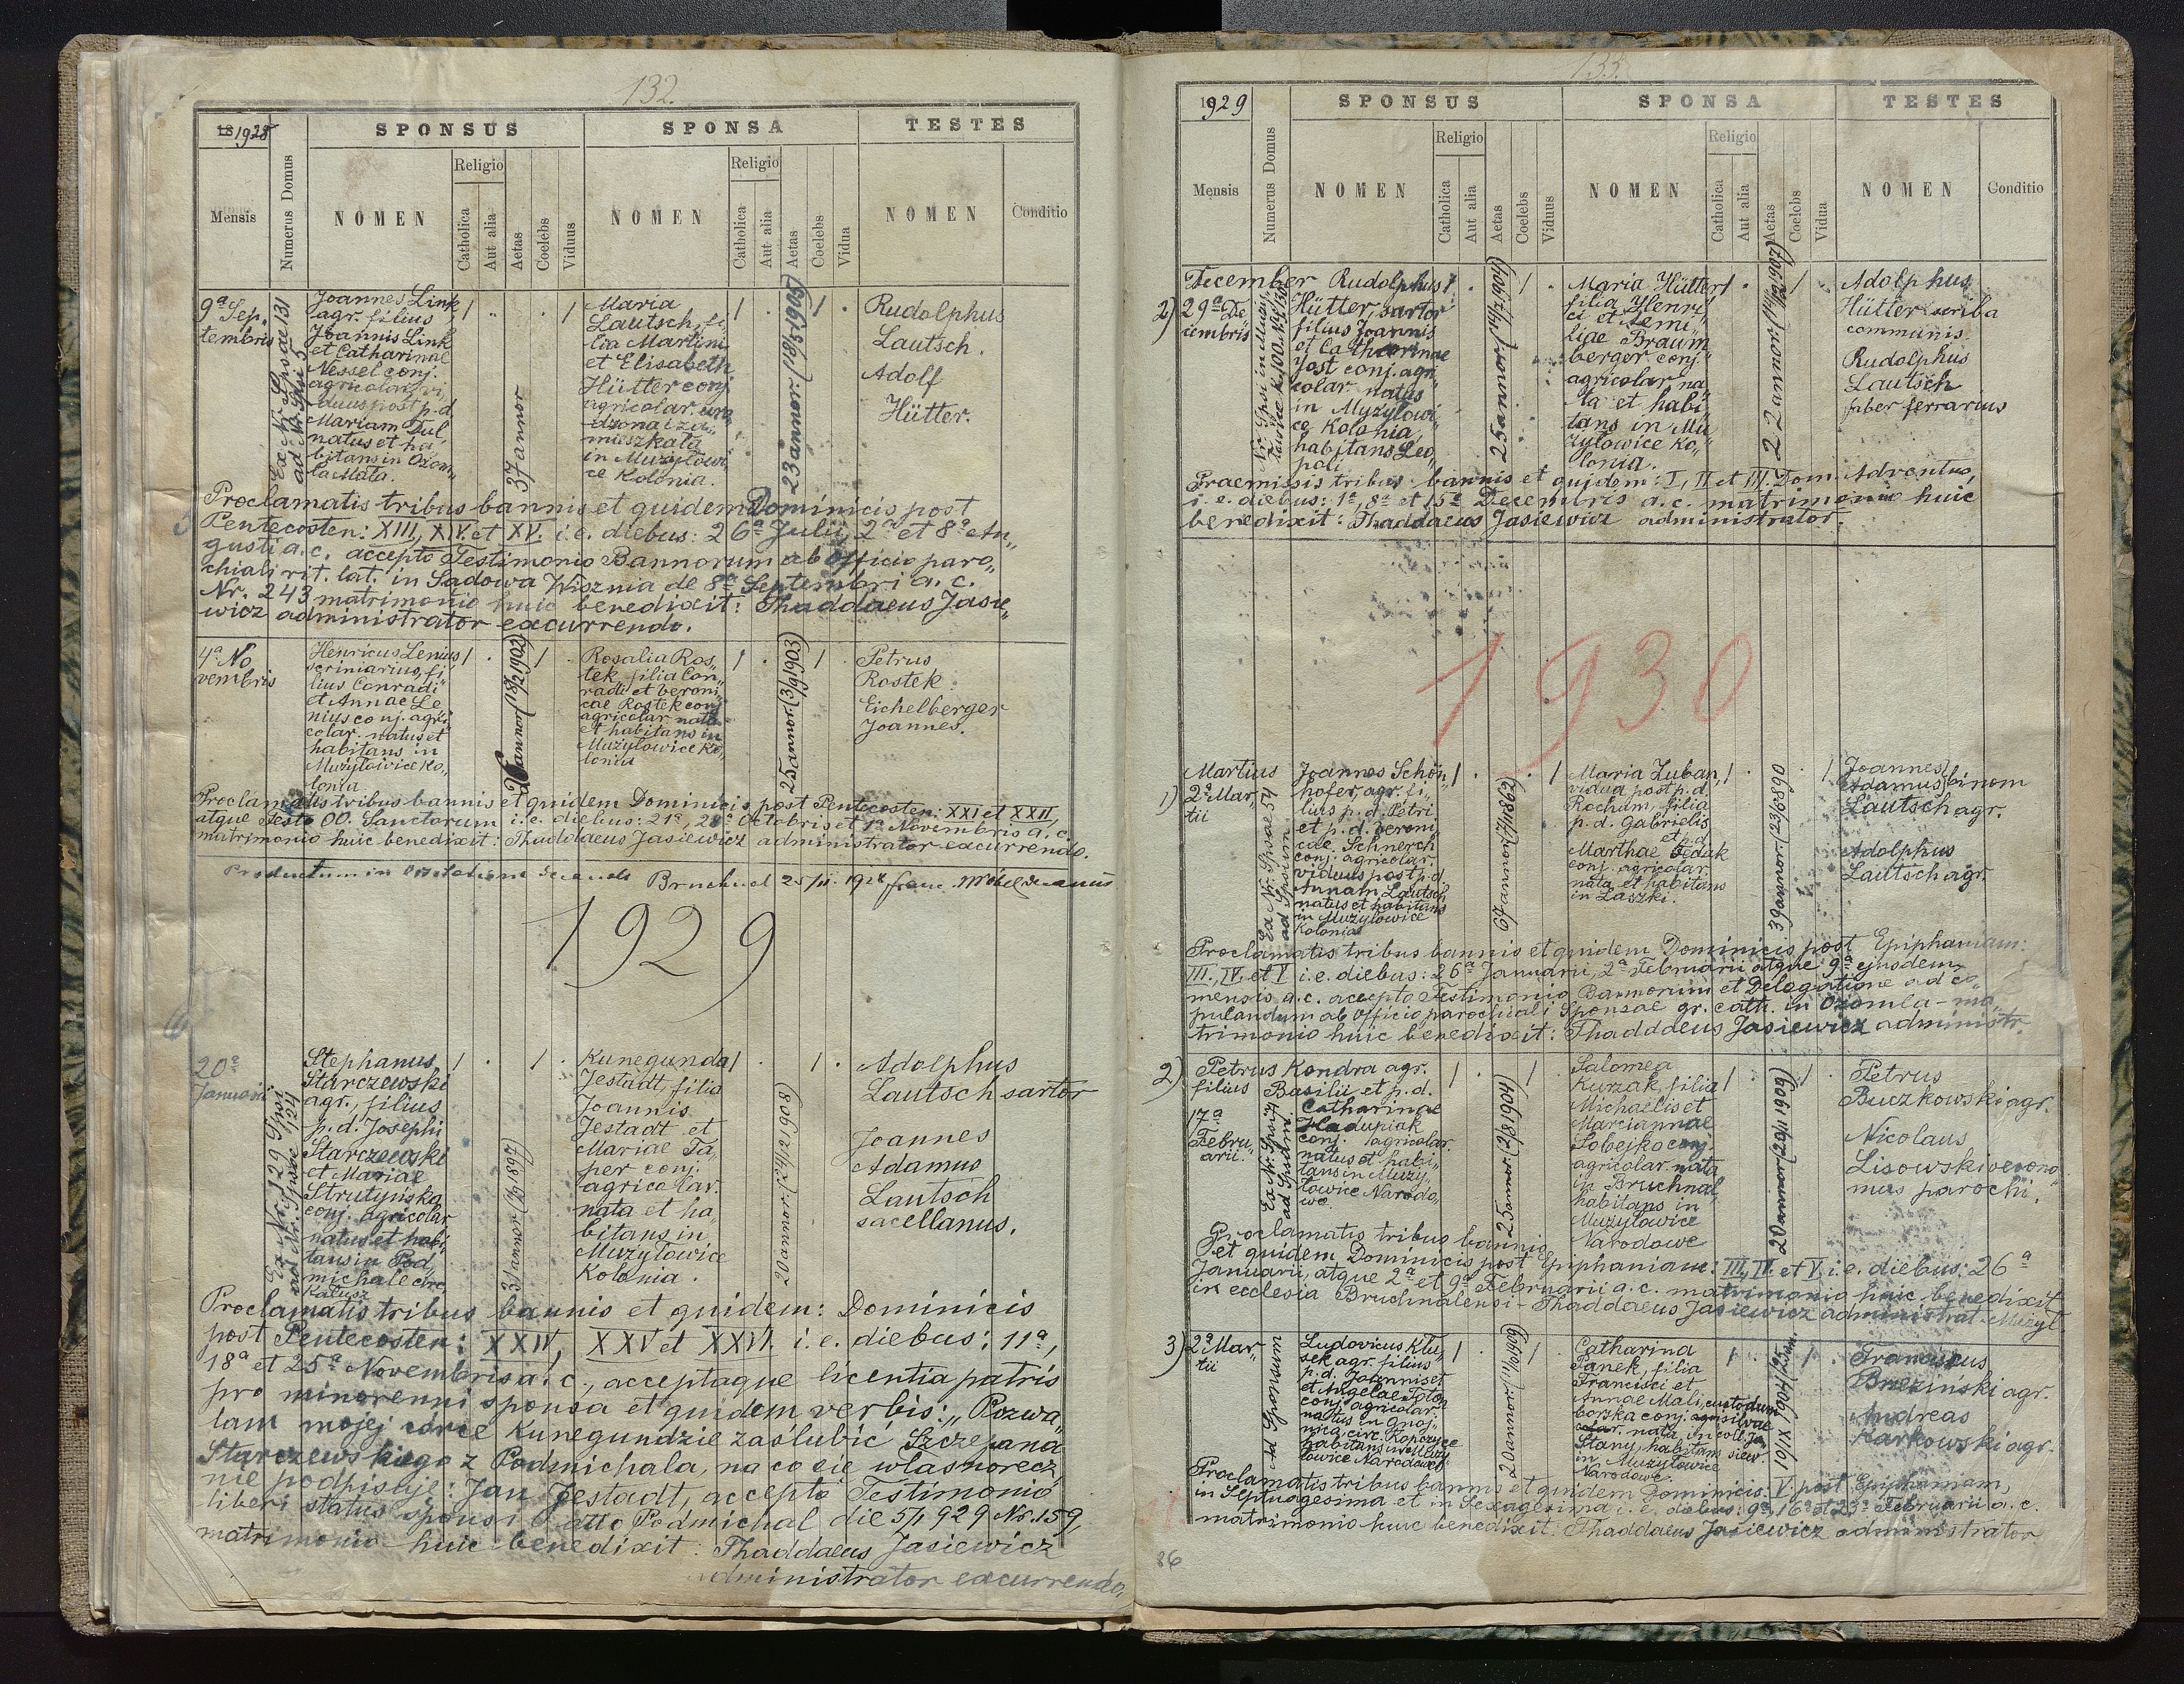 132.
1928
SPONSUS
SPONSA
TESTES
Mensis
Numerus Domus
NOMEN
Religio
Catholica
Aut alia
Aetas
Coelebs
Viduus
NOMEN
Religio
Catholica
Aut alia
Aetas
Coelebs
Vidua
NOMEN
Conditio
9ª Sep„
tembris
Ex Nr. Sponsae 131
ad Nr. Spsi 5
Joannes Link
agr. filius
Joannis Link
et Catharinae
Nessel conj.
agricolar, vi„
duus post p. d.
Mariam Dul,
natus et ha„
bitans in Ożom„
la Mała.
37 annor
Maria
Lautsch, fi„
lia Martini
et Elisabeth
Hütter conj
agricolar. uro„
dzona i za„
mieszkała
in Mużyłowi„
ce Kolonia.
23 annor. (18/5 1905)
Rudolphus
Lautsch.
Adolf
Hütter.
Proclamatis tribus bannis et quidem Dominicis post
Pentecosten: XIII, XIV. et XV. i. e. diebus: 26ª Julii, 2ª et 8ª Au„
gusti a. c. accepto Testimonio Bannorum ab Officio paro„
chiali rit. lat. in Sadowa Wisznia de 8ª Septembri a. c.
Nr. 243 matrimonio huic benedixit: Thaddaeus Jasie„
wicz administrator excurrendo.
4ª No
vembris
Henricus Lenius
scriniarius, fi„
lius Conradi
et Annae Le
nius conj. agri
colar. natus et
habitans in
Mużyłowice Ko„
lonia
26 annor (18/2 1902)
Rosalia Ros„
tek filia Con„
radi et Veroni„
cae Rostek conj
agricolar nata
et habitans in
Mużyłowice Ko„
lonia
25 annor. (3/9 1903)
Petrus
Rostek
Eichelberger
Joannes.
Proclamatis tribus bannis et quidem Dominicis post Pentecosten: XXI et XXII,
atque Festo OO. Sanctorum i. e. diebus: 21ª, 28ª Octobris et 1ª Novembris a. c.
matrimonio huic benedixit: Thaddaeus Jasiewicz administrator excurrendo.
Productum in visitatione decanali Bruchnal 25/11. 1928
1929
20ª
Januarii
Ex Nr. 129 Spsi
ad Nr. Spsae 124
Stephanus
Starczewski
agr., filius
p. d. Josephi
Starczewski
et Mariae
Strutyńska
conj. agricolar
natus et habi„
tans in Pod„
michale circ.
Kałusz
31 annor (1/9 1897)
Kunegunda
Jestadt, filia
Joannis
Jestadt et
Mariae Ta„
per conj.
agricolar.
nata et ha„
bitans in
Mużyłowice
Kolonia.
20 annor. (24/12 1908)
Adolphus
Lautsch sartor
Joannes
Adamus
Lautsch
sacellanus.
Proclamatis tribus bannis et quidem: Dominicis
post Pentecosten: XXIV, XXV et XXVI. i. e. diebus: 11ª,
18ª et 25ª Novembris a. c., acceptaque licentia patris
pro minorenni sponsa et quidem verbis: „Pozwa„
lam mojej córce Kunegundzie zaślubić Szczepana
Starczewskiego z Podmichala, na co się własnorecz„
nie podpisuje: Jan Jestadt, accepto Testimonio
liberi status sponsi Podmichal die 5/I 929 Nr. 159,
matrimonio huic benedixit: Thaddaeus Jasiewicz
administrator excurrendo.
133.
1929
SPONSUS
SPONSA
TESTES
Mensis
Numerus Domus
NOMEN
Religio
Catholica
Aut alia
Aetas
Coelebs
Viduus
NOMEN
Religio
Catholica
Aut alia
Aetas
Coelebs
Vidua
NOMEN
Conditio
December
2) 29ª De
cembris
Rudolphus
Hütter, sartor
filius Joannis
et Catharinae
Jost conj. agri
colar natus
in Mużyłowi„
ce Kolonia,
habitans Leo„
poli
25 annor (14/7 1904)
Maria Hütter
filia Henri„
ci et Aemi„
liae Braum
berger conj„
agricolar na„
ta et habi„
tans in Mu„
żyłowice Ko„
lonia.
22 annor. (14/12 1907)
Adolphus
Hütter scriba
communis
Rudolphus
Lautsch
faber ferrarius
Praemissis tribus bannis et quidem: I, II et III. Dom. Adventus,
i. e. diebus: 1ª, 8ª et 15ª Decembris a. c. matrimonio huic
benedixit: Thaddaeus Jasiewicz administrator.
1930
Martius
1) 2ª Mar„
tii
Ex Nr. Spsae 54
ad Sponsum
Joannes Schön„
hofer, agr. fi„
lius p. d. Petri
et p. d. Veroni„
cae Schnerch
conj. agricolar.
viduus post p. d.
Annam Lautsch
natus et habitans
in Mużyłowice
Kolonia
67 annor (7/1 1862)
Maria Luban,
vidua post p. d.
Rochum, filia
p. d. Gabrielis
et p. d.
Marthae Fedak
conj. agricolar.
nata et habitans
in Laszki.
39 annor. (23/3 890
Joannes
Adamus binom
Lautsch agr.
Adolphus
Lautsch agr.
Proclamatis tribus bannis et quidem Dominicis post Epiphaniam:
III., IV. et V i. e. diebus: 26ª Januarii, 2ª Februarii atque 9ª ejusdem
mensis a. c. accepto Testimonio Bannorum et Delegatione ad co„
pulandum ab Officio parochiali Sponsae gr. cath. in Ożomla – ma„
trimonio huic benedixit: Thaddaeus Jasiewicz administr.
2)
17ª
Febru„
arii.
Petrus Kondra agr.
filius Basilii et p. d.
Catharinae
Hadupiak
conj. agricolar.
natus et habi„
tans in Muży„
łowice Narodo„
we.
25 annor. (2/8 1904)
Salomea
Kurzak, filia
Michaelis et
Marciannae
Sobejko conj.
agricolar. nata
in Bruchnal,
habitans in
Mużyłowice
Narodowe
20 annor (26/11 1909)
Petrus
Buczkowski agr.
Nicolaus
Lisowski oecono„
mus parochi.
Proclamatis tribus bannis
et quidem Dominicis post Epiphaniam: III, IV. et V. i. e. diebus: 26ª
Januarii, atque 2ª et 9ª Februarii a. c. matrimonio huic benedixit
in ecclesia Bruchnalensi – Thaddaeus Jasiewicz administrat. Mużył.
3) 2ª Mar„
tii
Ad Sponsum
Ludovicus Klu„
sek agr. filius
p. d. Joannis et
et Angelae Toton
conj. agricolar.
natus in Gnoj„
nica, circ. Ropczyce
habitans in Muży„
łowice Narodowe
20 annor. (11/10 1909)
Catharina
Panek, filia
Francisci et
Annae Mali, custodum
borska conj. silvae
nata in coll. Ja
Stany, habitans
in Mużyłowice
Narodowe.
10/XI 1904/25 an.
Franciscus
Brzeziński agr.
Andreas
Karkowski agr.
Proclamatis tribus bannis et quidem Dominicis: V post Epiphaniam,
in Septuagesima et in Sexagesima i. e. diebus: 9ª, 16ª et 23ª Februarii a. c.
matrimonio huic benedixit: Thaddaeus Jasiewicz administrator
86